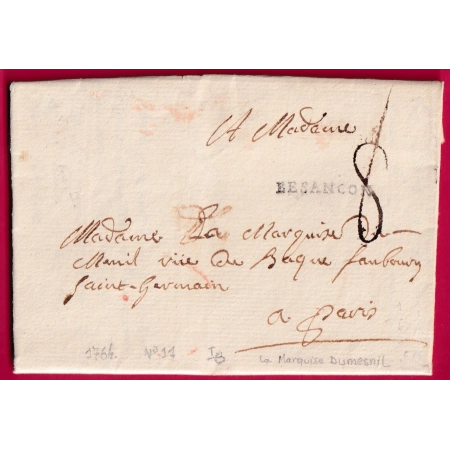 A Madame
8
BESANCON
Madame La Marquise du
Menil rüe de Baque faubourg
Saint-Germain
a Paris
1764 N°11 IB La Marquise DUMESNIL